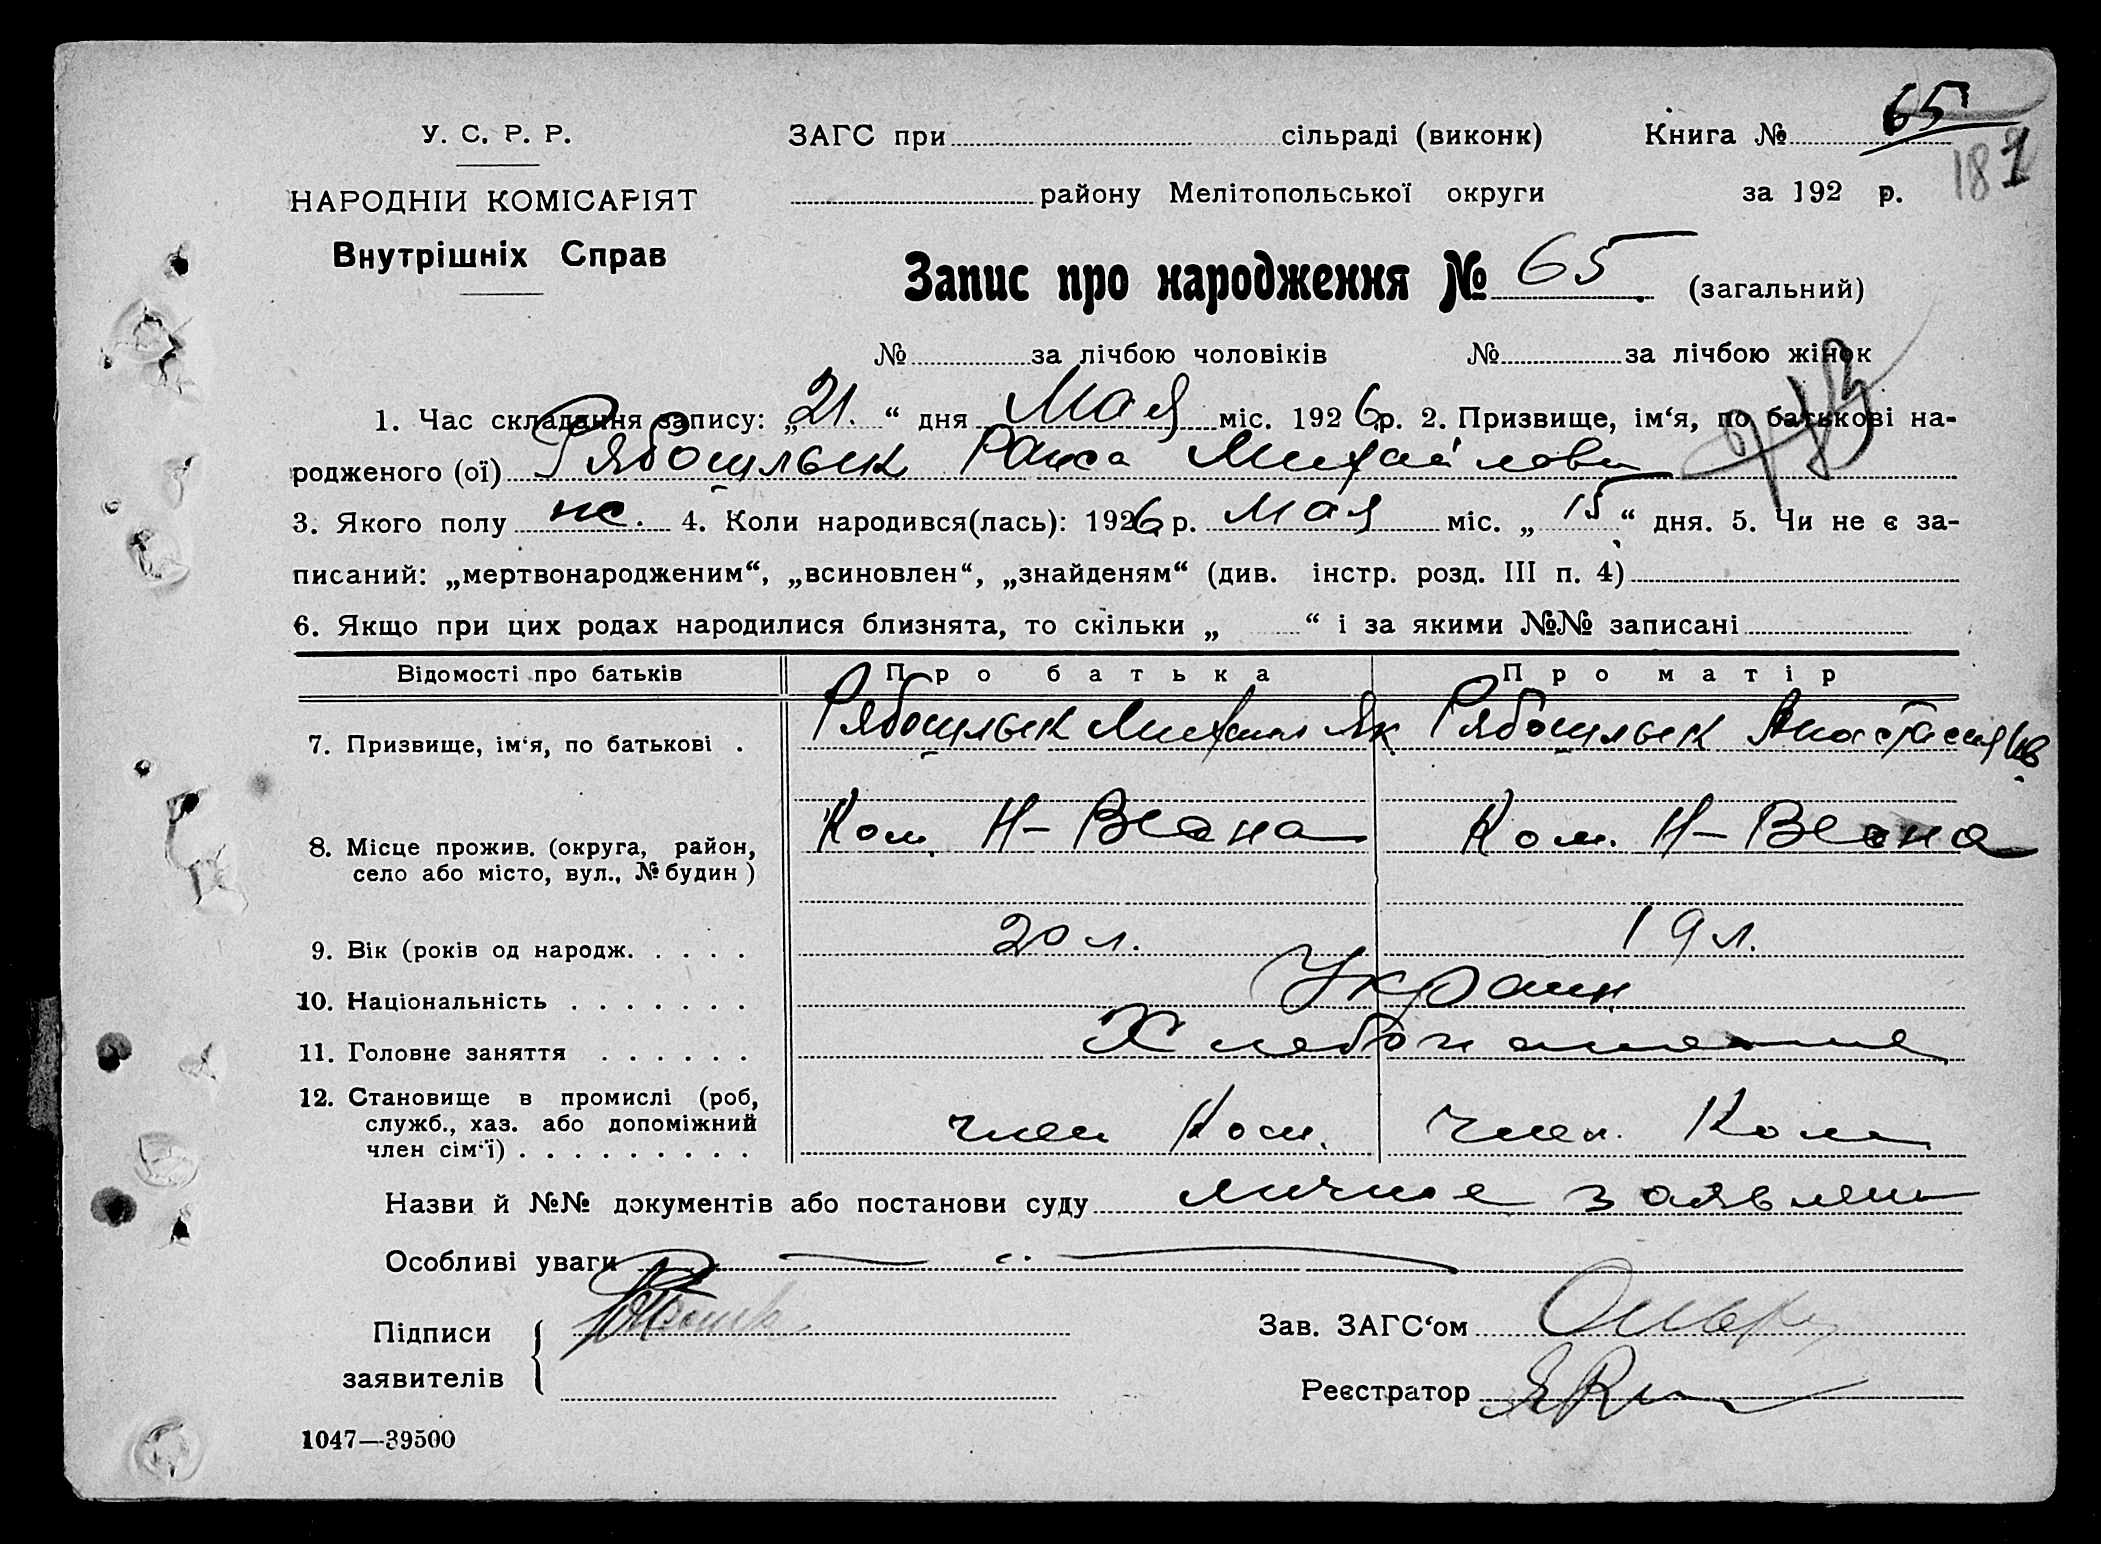 65
У. С. Р. Р. ЗАГС при сільраді (виконк) Книга №
187
НАРОДНІЙ КОМІСАРІЯТ району Мелітопольської округи за 192 р.
Внутрішніх Справ
Запис про народження № 65 (загальний)
№ за лічбою чоловіків № за лічбою жінок
1. Час складання запису: „21.“ дня Мая міс. 1926 р. 2. Призвище, ім‘я, по батькові на-
родженого (ої) Рябощлык Раиса Михайлова
3. Якого полу же. 4. Коли народився(лась): 1926 р. мая міс. „15“ дня. 5. Чи не є за-
писаний: „мертвонародженим“, „всиновлен“, „знайденям“ (див. інстр. розд. III п. 4)
6. Якщо при цих родах народилися близнята, то скільки „ “ і за якими №№ записані
Відомості про батьків Про батька Про матір
7. Призвище, ім‘я, по батькові . Рябощлык Михаил Як Рябощлык Анастасия Ив
Ком. Н-Весна Ком. Н-Весна
8. Місце прожив. (округа, район,
село або місто, вул., № будин)
9. Вік (років од народж. . . . . 20 л. 19 л.
10. Національність . . . . . . . Украин
11. Головне заняття . . . . . . Хлебопашение
12. Становище в промислі (роб,
служб., хаз. або допоміжний
член сім‘ї) . . . . . . . . . член Ком. член. Ком
Назви й №№ документів або постанови суду личное заявлен
Особливі уваги
Підписи Зав. ЗАГС‘ом
заявителів Реєстратор
1047—39500